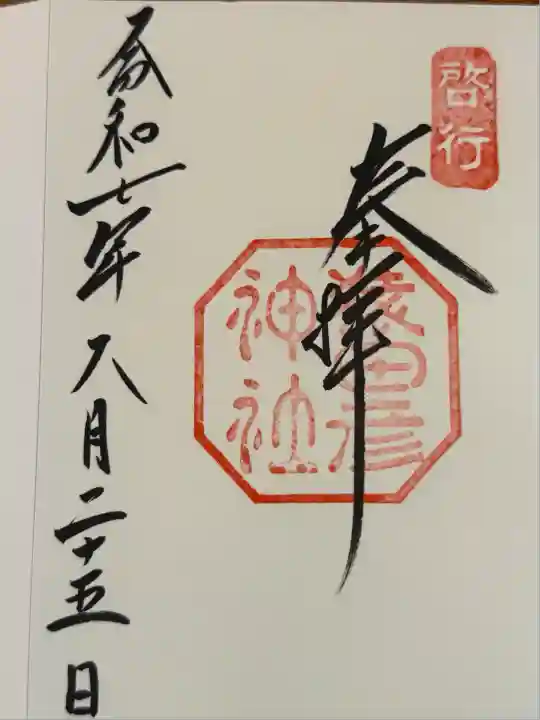 啓行
奉拝
猿田彦
神社
令和七年八月二十五日